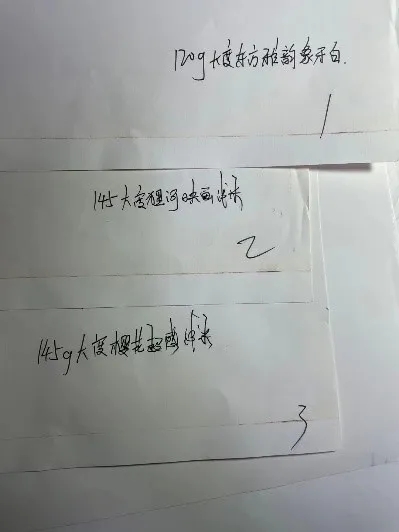 120g大度东方雅韵象牙白.
1
145大度河映画米
2
145g大度樱花感米
3